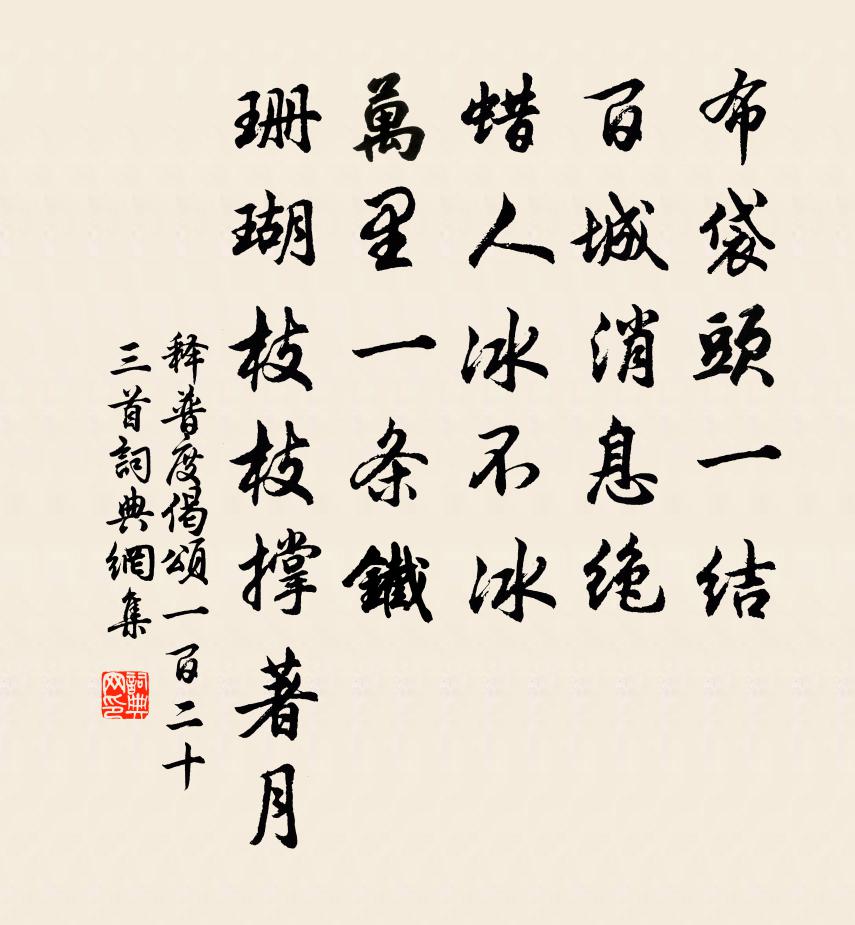 布袋頭一結
百城消息絶
蜡人冰不冰
萬里一条鐵
珊瑚枝枝撑著月
释普度偈頌一百二十
三首詞典網集
詞典
网印